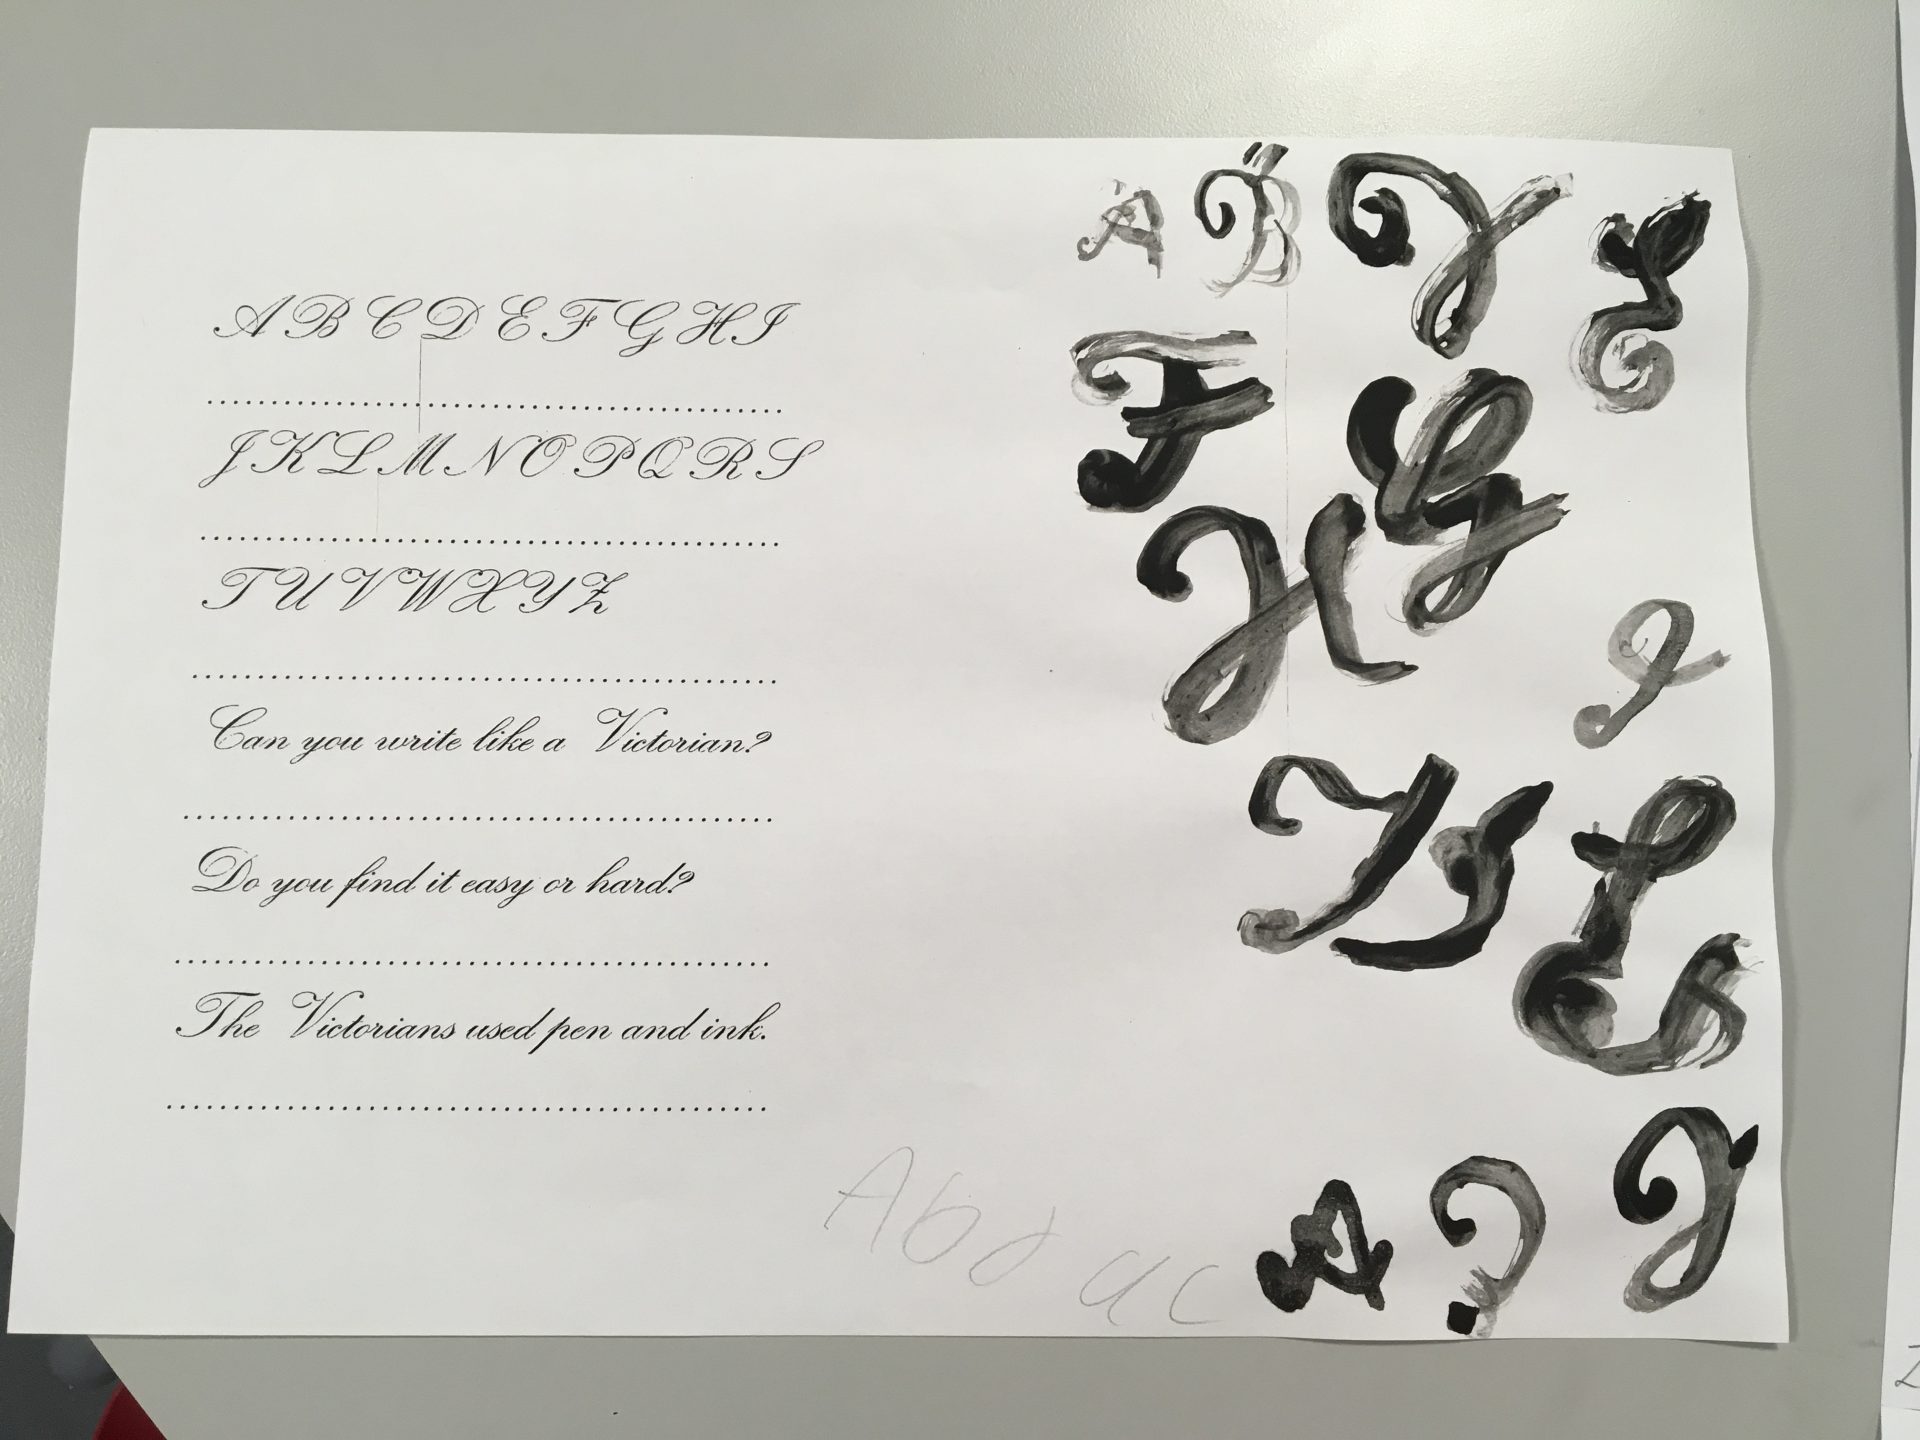 A B C D E F G H I
J K L M N O P Q R S
T U V W X Y Z
Can you write like a Victorian?
Do you find it easy or hard?
The Victorians used pen and ink.
A B
F G
H
I
A ?